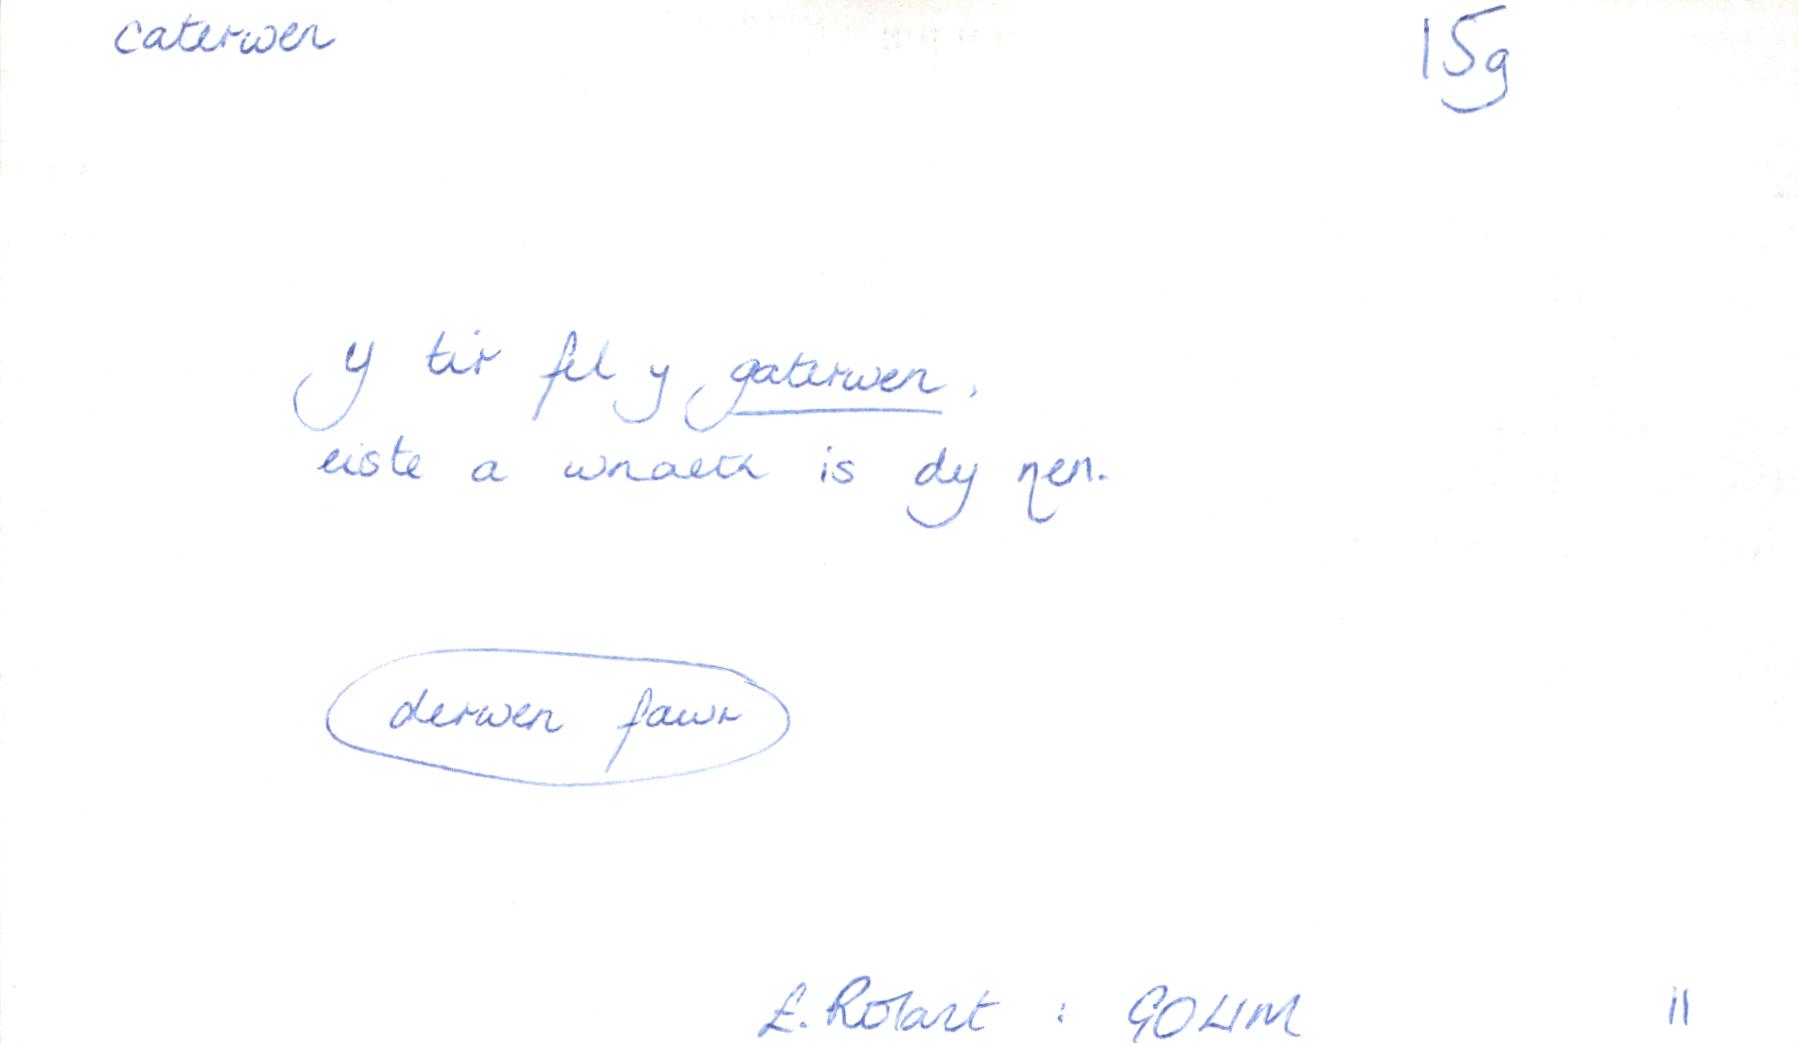 caterwen
15g
y tir fel y gaterwen,
eiste a wnaeth is dy nen.
derwen fawr
11